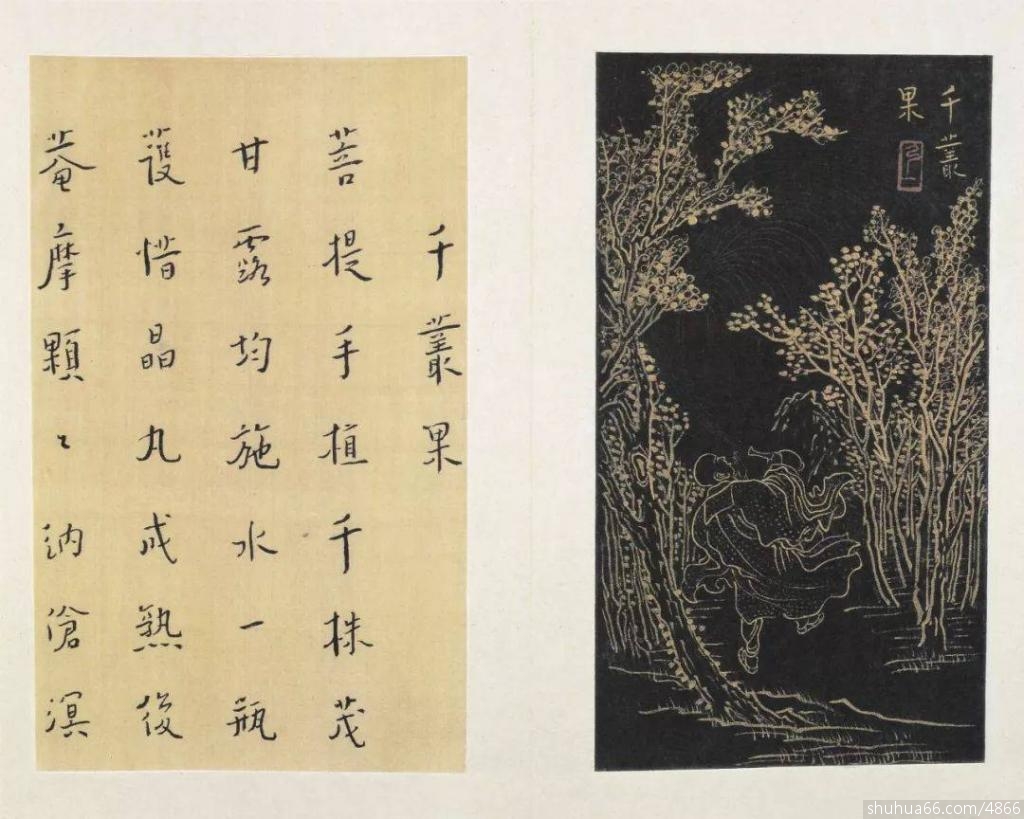 千叢果
菩提手植千株茂
甘露均施水一瓶
護惜晶丸成熟後
菴摩顆〻納滄溟
千叢
果
shuhua66.com/4866